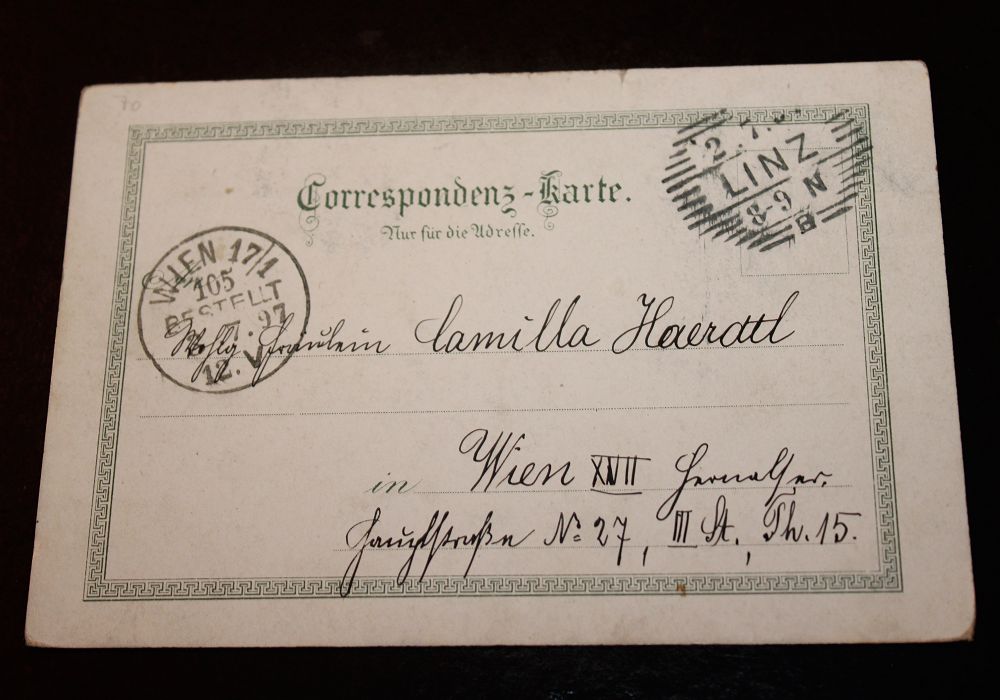 70
Correspondenz-Karte.
Nur für die Adresse.
2. 7.
LINZ
8-9 N
B
WIEN 17/1
105
BESTELLT
97
12. V
Wohlg. Fräulein Camilla Haerdtl
in Wien XVII Hernalser.
Hauptstraße No 27, III St., Th. 15.